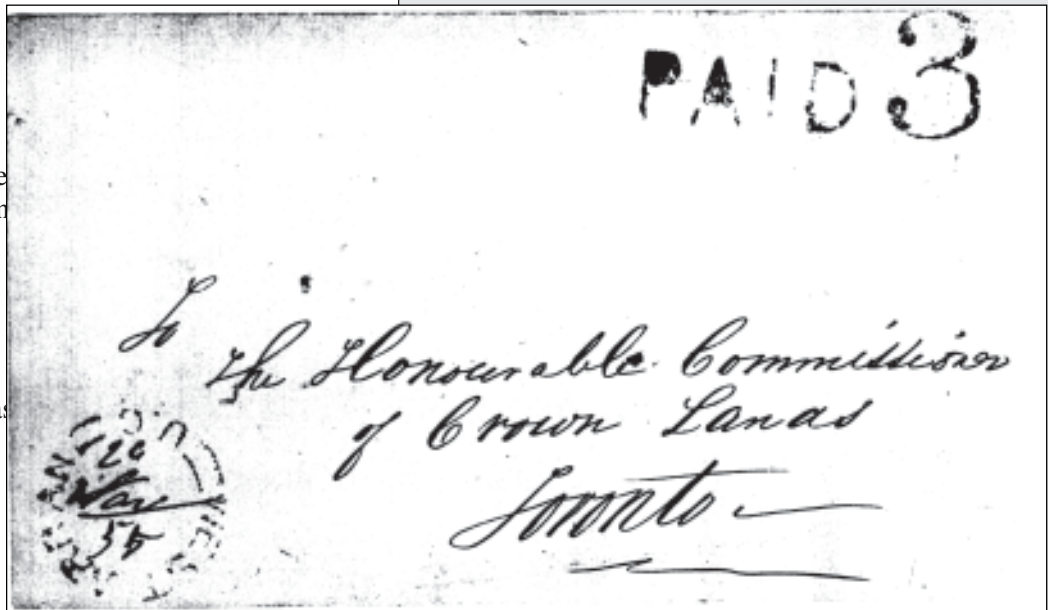 PAID 3
To
The Honourable Commissioner
of Crown Lands
Toronto